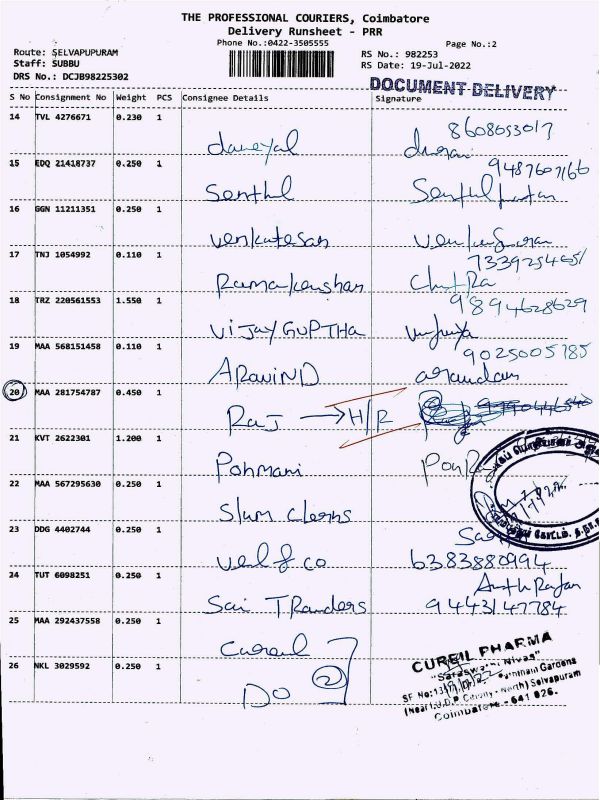 THE PROFESSIONAL COURIERS, Coimbatore
Delivery Runsheet - PRR
Phone No.:0422-3505555
Page No.:2
Route: SELVAPUPURAM
Staff: SUBBU
DRS No.: DCJB98225302
RS No.: 982253
RS Date: 19-Jul-2022
DOCUMENT DELIVERY
S No Consignment No Weight PCS Consignee Details Signature
14 TVL 4276671 0.230 1
daneyal 8608053017
15 EDQ 21418737 0.250 1
Senthil 9487607166
16 GGN 11211351 0.250 1
Venkatesan
17 TNJ 1054992 0.110 1
Ramakrushnan
18 TRZ 220561553 1.550 1
VIJAY GUPTHA 9894628629
19 MAA 568151458 0.110 1
ARAVIND 9025005785
20 MAA 281754787 0.450 1
RAJ → H/R
21 KVT 2622301 1.200 1
Ponmani
22 MAA 567295630 0.250 1
Slum
23 DDG 4402744 0.250 1
Vel & co 6383880994
24 TUT 6098251 0.250 1
Sai TRanders 9443147784
25 MAA 292437558 0.250 1
Cureil
26 NKL 3029592 0.250 1
DO 2
CUREIL PHARMA
"Saraswathi Nivas"
Gardens
Selvapuram
Coimbatore - 641 026.